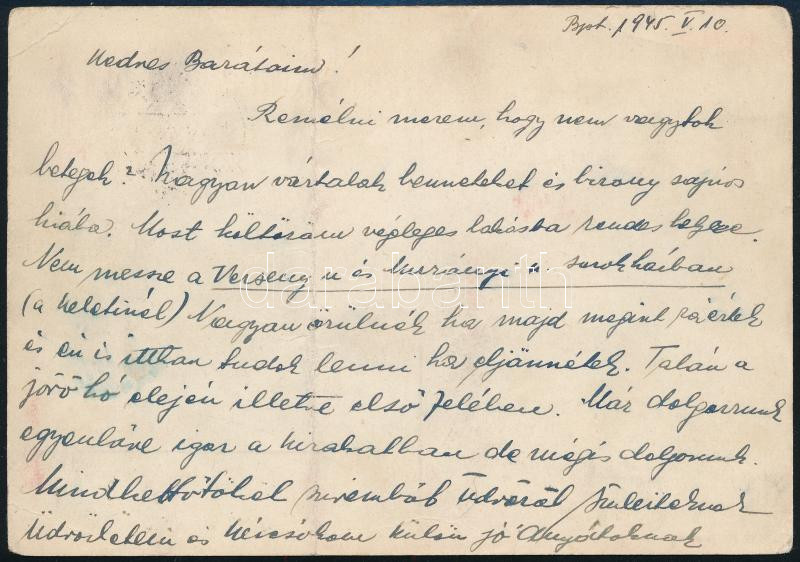 Bpt. 1945. V. 10.
Kedves Barátaim!
Remélni merem, hogy nem vagytok
betegek? Nagyon vártalak benneteket és bizony sajnos
hiába. Most költöztem végleges lakásba rendes helyre.
Nem messze a Verseny u és Murányi u. sarokházban
(a keletinél) Nagyon örülnék ha majd megint ráértek
és én is itthon tudok lenni ha eljönnétek. Talán a
jövő hó elején illetve első felében. Már dolgozunk
egyenlőre igaz a kirakatban de mégis dolgozunk.
Mindkettőtöket szívemből üdvözöl Szüleiteknek
üdvözletem és kézcsókom külön jó Anyátoknak
darabanth